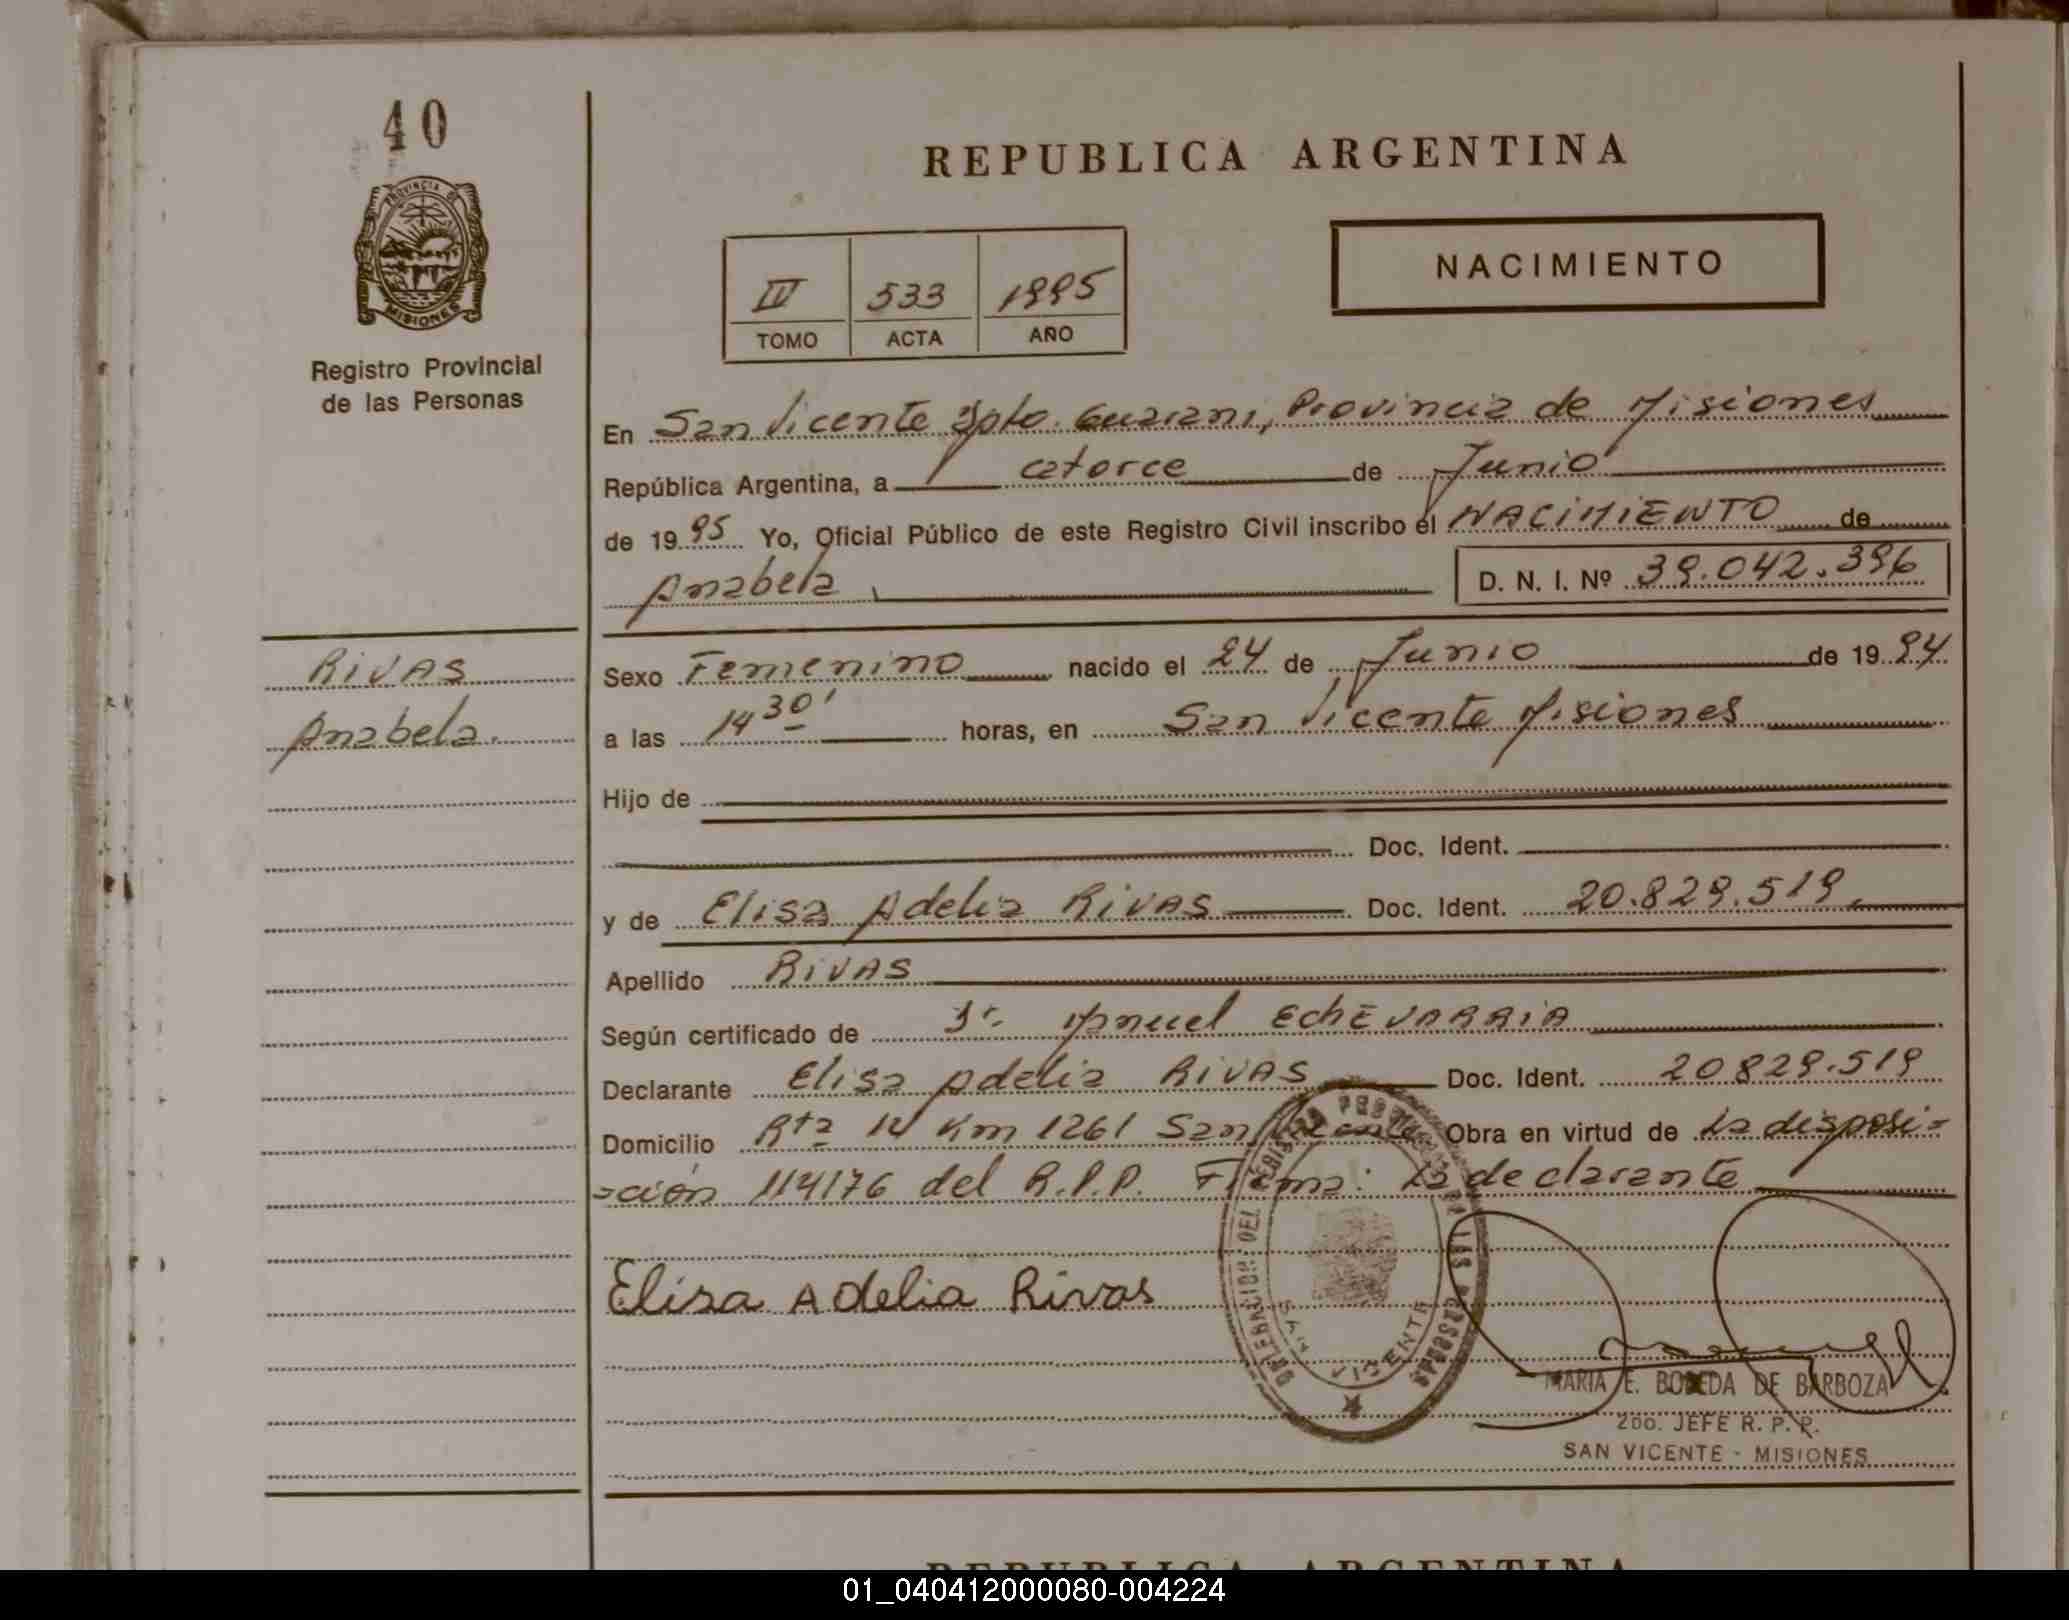 40
PROVINCIA DE
MISIONES
Registro Provincial
de las Personas
REPUBLICA ARGENTINA
NACIMIENTO
IV 533 1995
TOMO ACTA AÑO
En San Vicente Dpto. Guarani, Provincia de Misiones
República Argentina, a catorce de Junio
de 1995 Yo, Oficial Público de este Registro Civil inscribo el NACIMIENTO de
Anabela D. N. I. Nº 39.042.396
RIVAS
Anabela.
Sexo Femenino nacido el 24 de Junio de 1994
a las 14 30' horas, en San Vicente Misiones
Hijo de
Doc. Ident.
y de Elisa Adelia RIVAS Doc. Ident. 20.829.519
Apellido RIVAS
Según certificado de Dr. Manuel ECHEVARRIA
Declarante Elisa Adelia RIVAS Doc. Ident. 20829.519
Domicilio Rta 14 Km 1261 San Vicente Obra en virtud de la disposi=
=ción 114176 del R.P.P. Firma: la declarante
Elisa Adelia Rivas
DELEGACION DEL REGISTRO PROVINCIAL DE LAS PERSONAS
SAN VICENTE
MARIA E. BOBEDA DE BARBOZA
2DO. JEFE R. P. P.
SAN VICENTE - MISIONES
REPUBLICA ARGENTINA
01_040412000080-004224